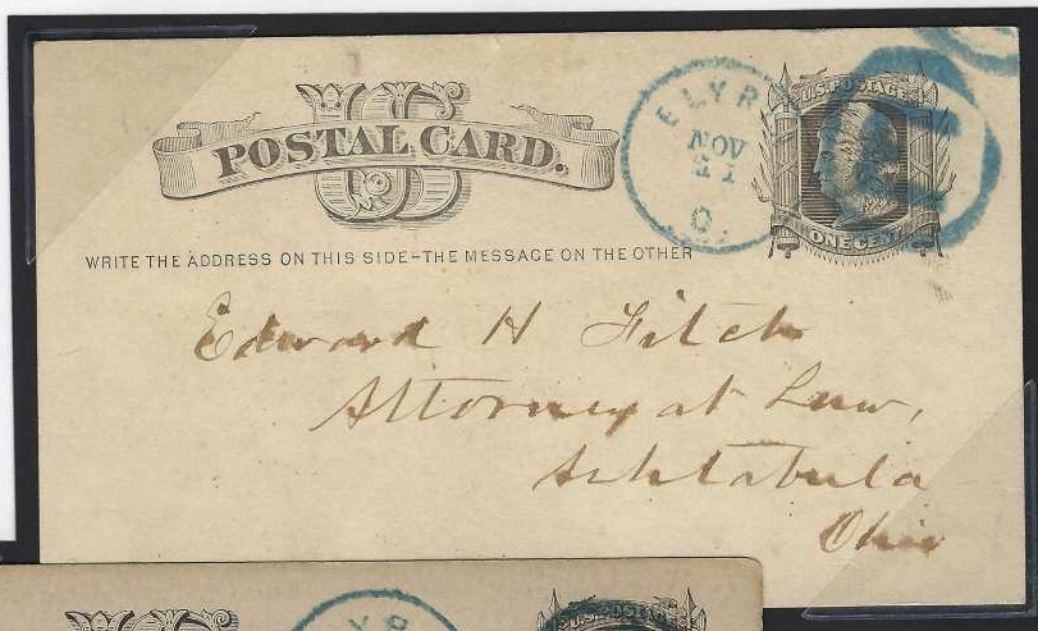 US
POSTAL CARD.
WRITE THE ADDRESS ON THIS SIDE-THE MESSAGE ON THE OTHER
ELYR
NOV
21
O.
U.S. POSTAGE
ONE CENT
Edward H Fitch
Attorney at Law,
Ashtabula
Ohio
YR
U.S. POSTAGE